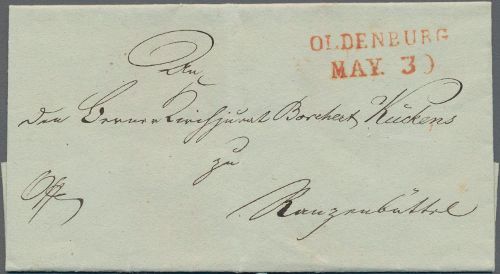 OLDENBURG
MAY. 3)
An
den Berner Kirchjurat Borchert Kückens
zu
Ranzenbüttel